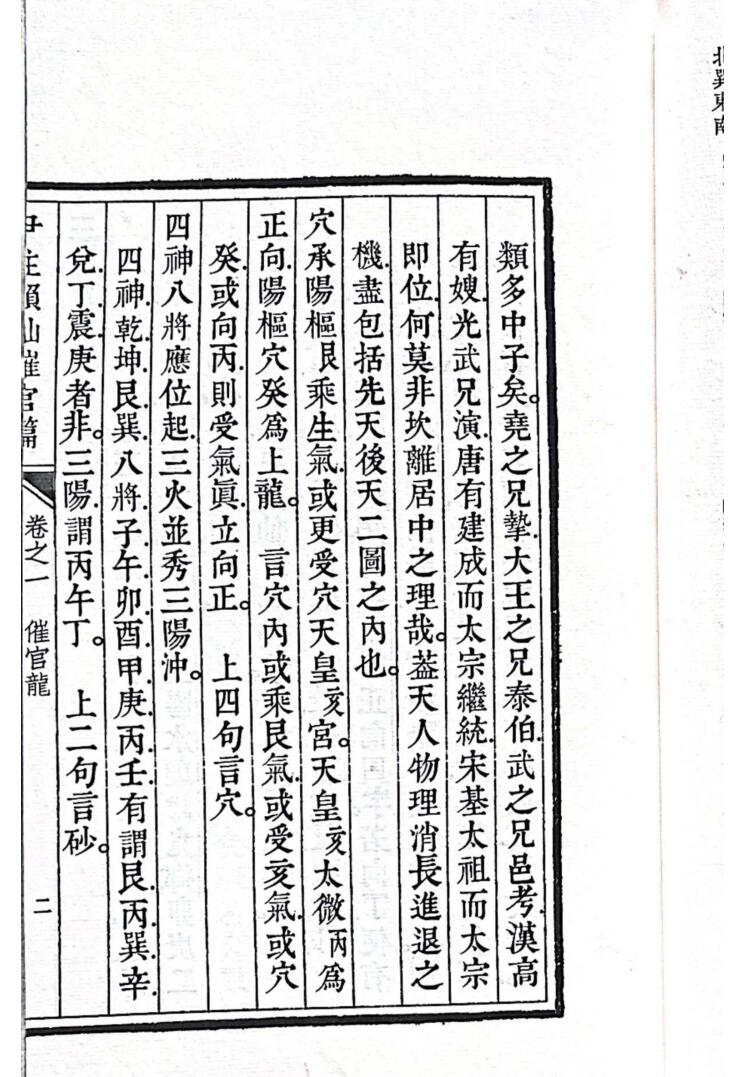 北巽東南
類多中子矣。堯之兄摯、大王之兄泰伯、武之兄邑考、漢高
有嫂、光武兄演、唐有建成而太宗繼統、宋基太祖而太宗
即位、何莫非坎離居中之理哉。蓋天人物理消長進退之
機、盡包括先天後天二圖之內也。
穴承陽樞艮乘生氣、或更受穴天皇亥宮。天皇亥太微丙爲
正向、陽樞穴癸爲上龍。 言穴內或乘艮氣、或受亥氣、或穴
癸、或向丙、則受氣眞、立向正。 上四句言穴。
四神八將應位起、三火並秀三陽沖。
四神、乾坤艮巽、八將、子午卯酉甲庚丙壬、有謂艮、丙、巽、辛、
兌、丁、震、庚者非。三陽、謂丙午丁。 上二句言砂。
尹注賴仙催官篇 卷之一 催官龍 二